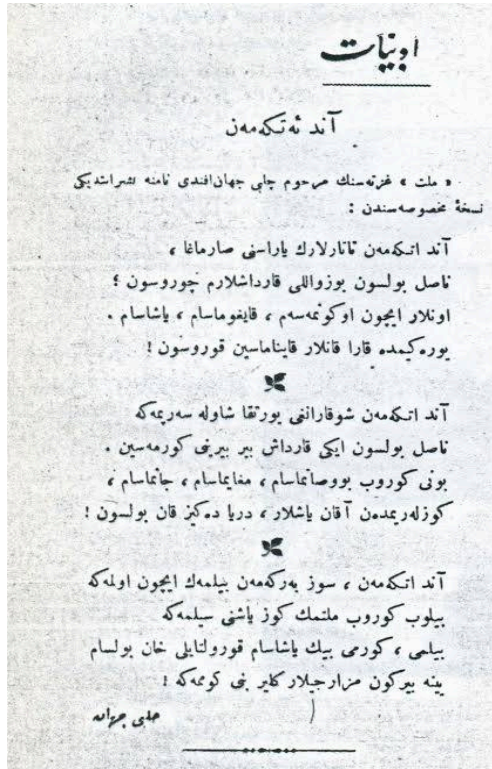 ادبیات
آند ئه‌تكه‌مەن
« ملت » غزته‌سنك مرحوم چلبی جهان افندی نامنه نشر ایتدیكی
نسخهٔ مخصوصه‌سندن :
آند اتكەمەن تاتارلارك یاراسنی صارماغا ،
ناصل بولسون بوزواللی قارداشلارم چوروسون ؛
اونلار ایچون اوكونمەسەم ، قایغوماسام ، یاشاسام .
یوره‌كیمده قارا قانلار قایناماسین قوروسون !
آند اتكەمەن شوقارانغی یورتقا شاوله سەریمەكە
ناصل بولسون ایكی قارداش بیر بیرنی كورمەسین .
بونی كوروب بووصانماسام ، مغایماسام ، جانماسام ،
كوزلەریمدەن آقان یاشلار ، دریا دەكیز قان بولسون !
آند اتكەمەن ، سوز بەركەمەن بیلمەك ایچون اولمەكە
بیلوب كوروب ملتمك كوز یاشنی سیلمەكە
بیلمی ، كورمی بیك یاشاسام قورولتایلی خان بولسام
یینە بیركون مزارجیلار كلیر بنی كوممەكە !
چلبی جهان